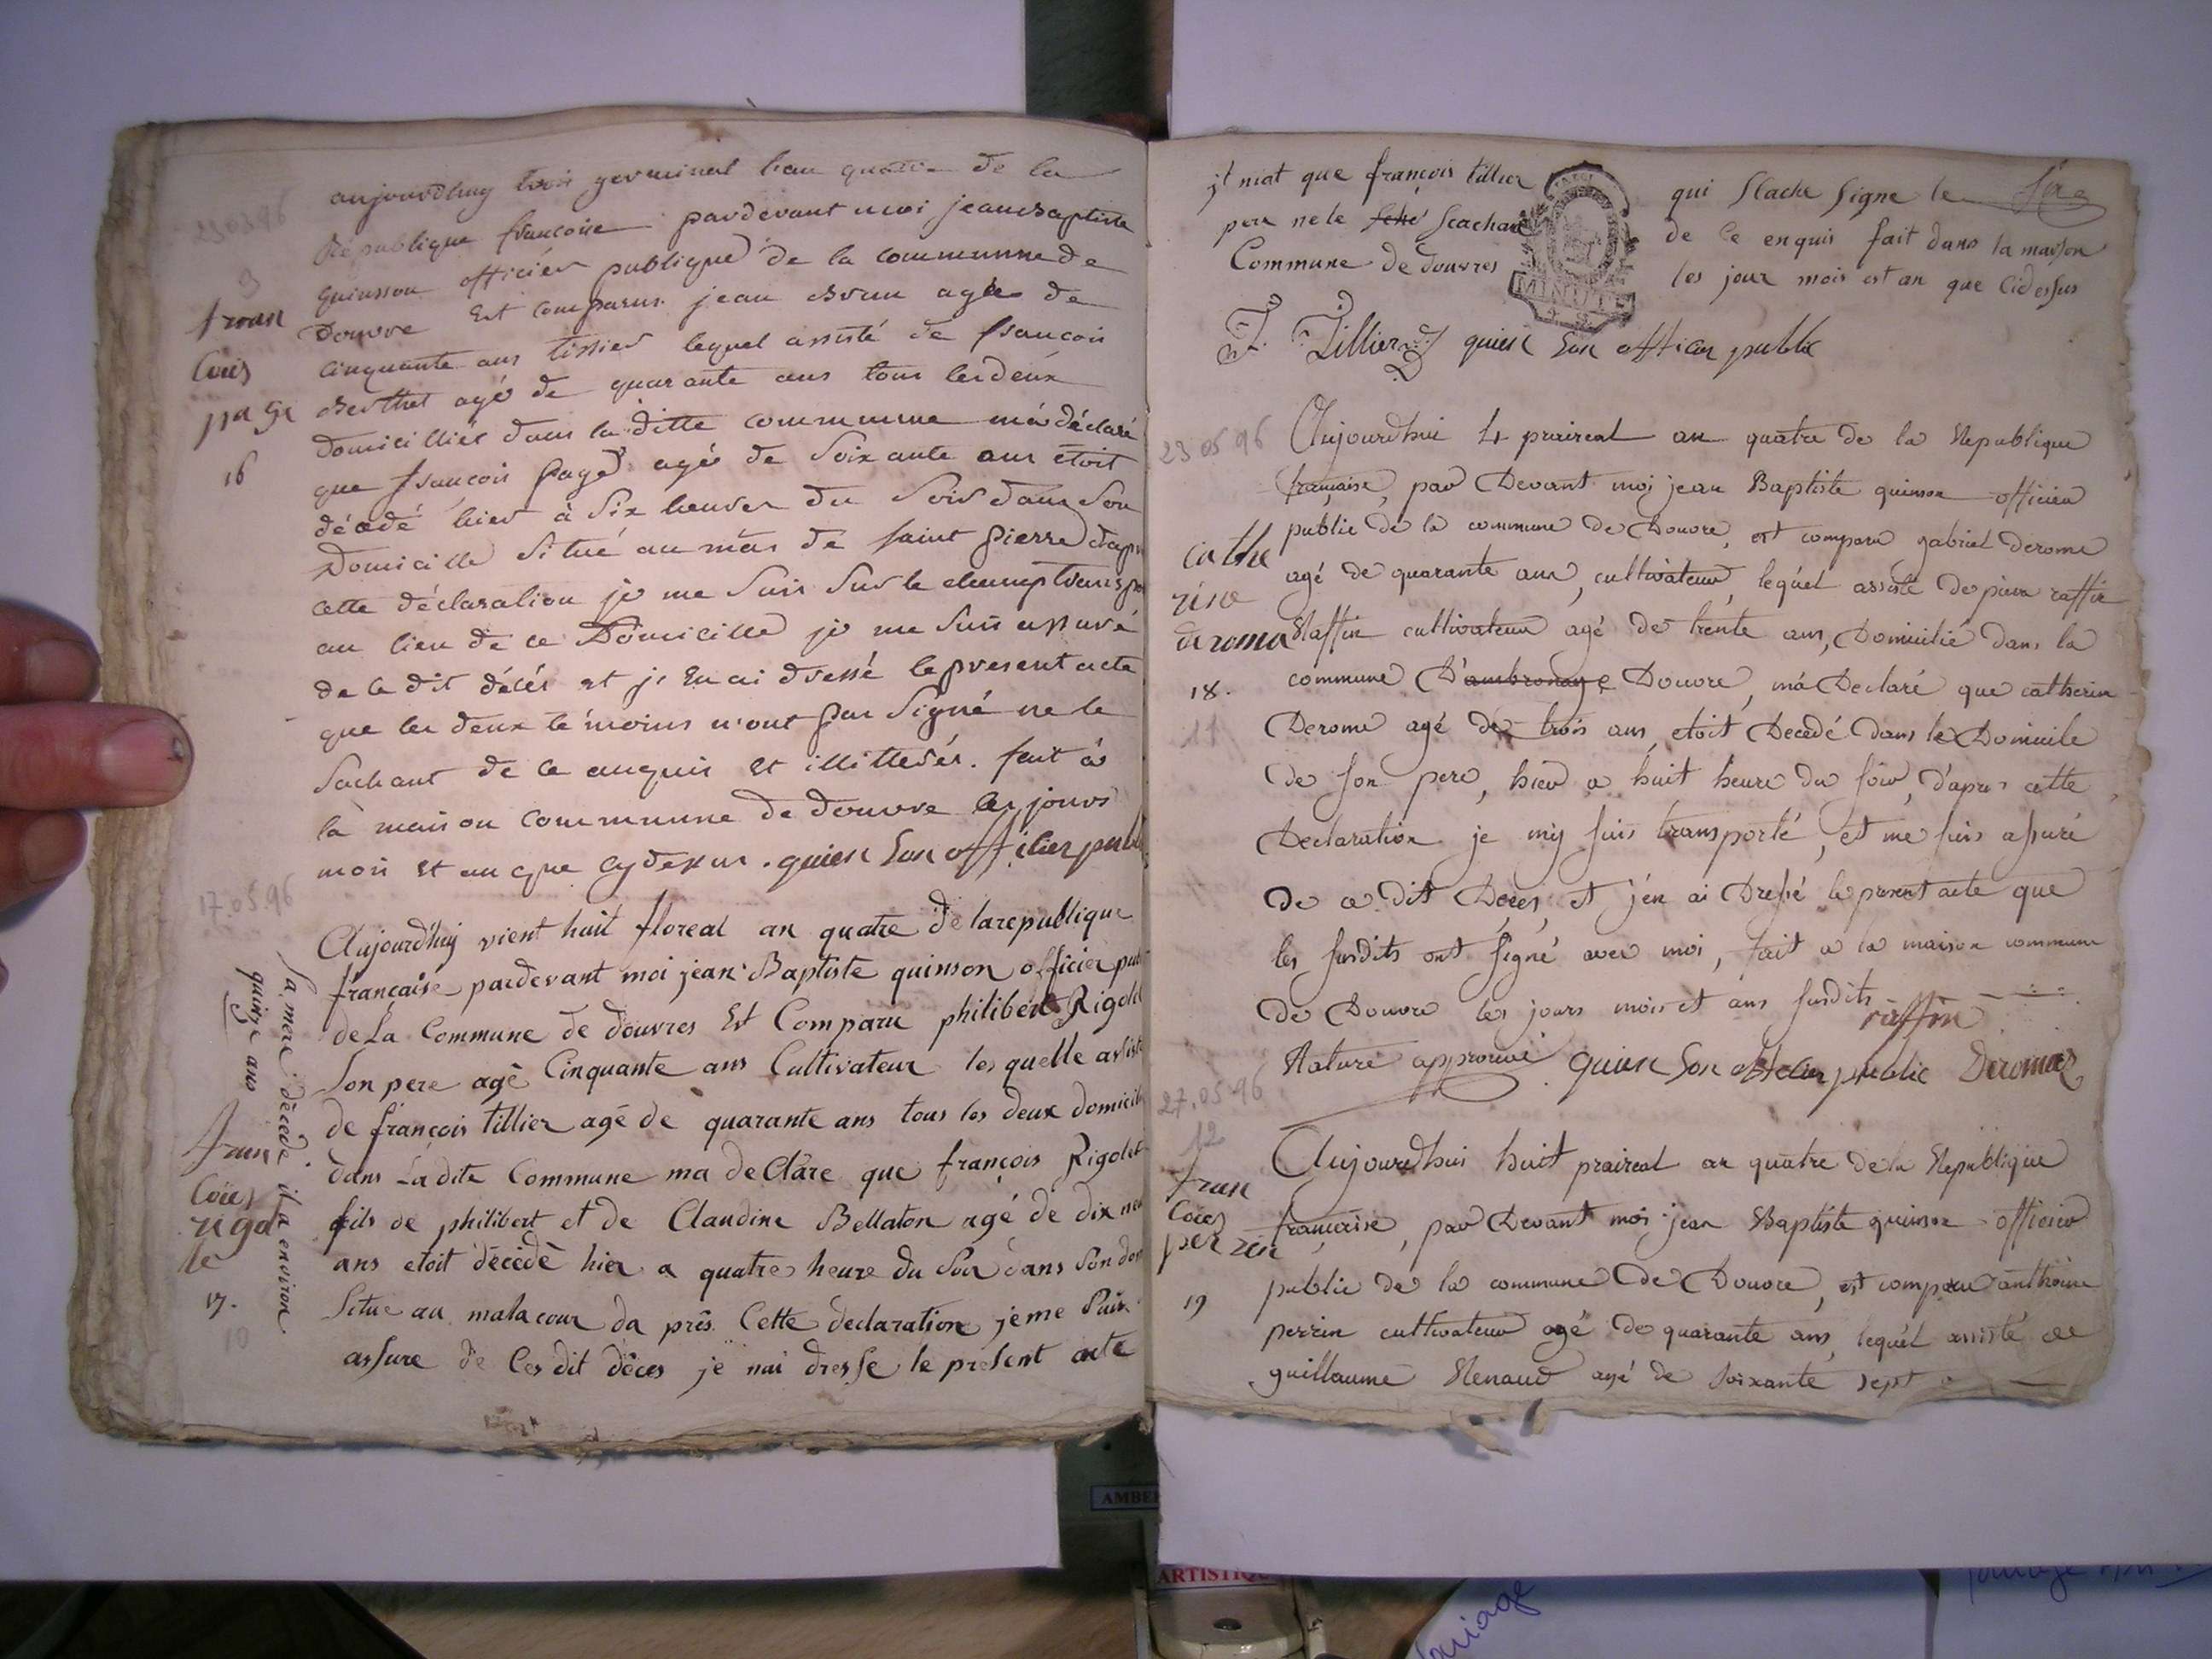 23 03 96
aujourdhuy trois germinal l'an quatre de la
République francoise pardevant moi jean baptiste
quinsson officier publique de la commune de
Douvre Est comparus jean brun agée de
cinquante ans tissier lequel assisté de francois
berthet agé de quarante ans tous les deux
domicilliés dans la ditte commune m'a déclaré
que francois page agé de soixante ans étoit
décédé hier à six heures du soir dans son
Domicille situé au mas de saint pierre d'apr
cette déclaration je me suis sur le champ transpor
au lieu de ce Domicille je me suis assuré
de le dit décés et je En ai dressé le present acte
que les deux témoins n'ont pas signé ne le
sachant de ce enquis et illitterés. fait à
la maison commune de douvre les jours
mois et an que cydessus. quien son officier publ
9
fran
Cois
page
16
17.05.96
Aujourd'huy vient huit floreal an quatre de la republique
française pardevant moi jean Baptiste quinson officier publ
de La Commune de douvres Est Comparu philibert Rigolet
son pere agé Cinquante ans Cultivateur les quelle assiste
de françois tillier agé de quarante ans tous les deux domicili
dans La dite Commune ma declare que françois Rigolet
fils de philibert et de Claudine Bellaton agé de dix neu
ans etoit décédé hier a quatre heure du soir dans son dom
situe au malacour da prés Cette declaration je me suis
assure de Ces dit déces je nai dresse le present acte
sa mere décéde il a environ
quinze ans
fran
Coies
rigol
le
17.
10
jl niat que françois tillier qui slache signe le
per ne le sche scachant de Ce enquis fait dans la maison
Commune de douvres les jour mois est an que Cidessus
MINUTE
F. Tillier quien son officier public
23 05 96
Aujourdhui 4 praireal an quatre de la Republique
française, par Devant moi jean Baptiste quinson officier
public de la commune de Douvre, est comparu gabriel derome
agé de quarante ans, cultivateur, lequel assisté de pierre raffin
Raffin cultivateur agé de trente ans, Domicilié dans la
commune D'ambronay e Douvre, m'a Declaré que catherin
Derome agé de trois ans, etoit Decedé dans le Domicile
de son pere, hier a huit heure du soir, d'apres cette
Declaration je mij suis transporté, et me suis assuré
De ce dit Decés, et j'en ai Dressé le present acte que
les susdits ont signé avec moi, fait a la maison commune
de Douvre les jours mois et ans susdits
raffin
Rature approuvé quien son officier public Deromas
cathe
rine
deroma
18.
11
27.05.96
12
Aujourdhui huit praireal an quatre de la Republique
française, par Devant moi jean Baptiste quinson officier
public de la commune De Douvre, est comparu anthoine
perrin cultivateur agé de quarante ans, lequel assisté de
guillaume Renaud agé de soixante sept
fran
Coies
per rin
19
AMBE
ARTISTIQU